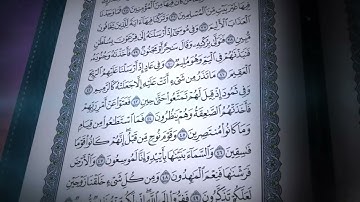 فِيهَا غَيْرَ بَيْتٍ مِّنَ الْمُسْلِمِينَ ﴿٣٦﴾ وَتَرَكْنَا فِيهَا آيَةً لِّلَّذِينَ يَخَافُونَ
الْعَذَابَ الْأَلِيمَ ﴿٣٧﴾ وَفِي مُوسَىٰ إِذْ أَرْسَلْنَاهُ إِلَىٰ فِرْعَوْنَ بِسُلْطَانٍ
مُّبِينٍ ﴿٣٨﴾ فَتَوَلَّىٰ بِرُكْنِهِ وَقَالَ سَاحِرٌ أَوْ مَجْنُونٌ ﴿٣٩﴾ فَأَخَذْنَاهُ وَجُنُودَهُ
فَنَبَذْنَاهُمْ فِي الْيَمِّ وَهُوَ مُلِيمٌ ﴿٤٠﴾ وَفِي عَادٍ إِذْ أَرْسَلْنَا عَلَيْهِمُ الرِّيحَ
الْعَقِيمَ ﴿٤١﴾ مَا تَذَرُ مِن شَيْءٍ أَتَتْ عَلَيْهِ إِلَّا جَعَلَتْهُ كَالرَّمِيمِ ﴿٤٢﴾
وَفِي ثَمُودَ إِذْ قِيلَ لَهُمْ تَمَتَّعُوا حَتَّىٰ حِينٍ ﴿٤٣﴾ فَعَتَوْا عَنْ أَمْرِ رَبِّهِمْ
فَأَخَذَتْهُمُ الصَّاعِقَةُ وَهُمْ يَنظُرُونَ ﴿٤٤﴾ فَمَا اسْتَطَاعُوا مِن قِيَامٍ
وَمَا كَانُوا مُنتَصِرِينَ ﴿٤٥﴾ وَقَوْمَ نُوحٍ مِّن قَبْلُ إِنَّهُمْ كَانُوا قَوْمًا
فَاسِقِينَ ﴿٤٦﴾ وَالسَّمَاءَ بَنَيْنَاهَا بِأَيْيدٍ وَإِنَّا لَمُوسِعُونَ ﴿٤٧﴾ وَالْأَرْضَ
فَرَشْنَاهَا فَنِعْمَ الْمَاهِدُونَ ﴿٤٨﴾ وَمِن كُلِّ شَيْءٍ خَلَقْنَا زَوْجَيْنِ
لَعَلَّكُمْ تَذَكَّرُونَ ﴿٤٩﴾ فَفِرُّوا إِلَى اللَّهِ